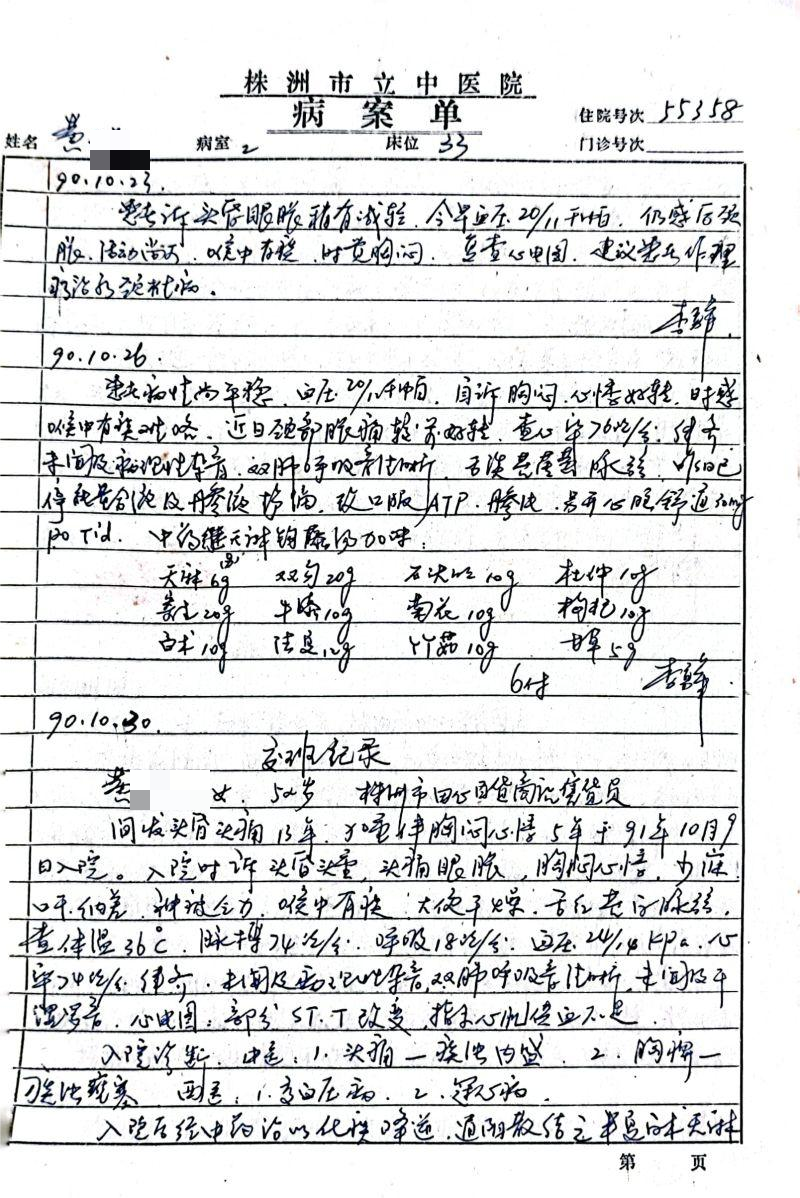 株洲市立中医院
病案单
住院号次 55358
姓名 黄 病室 2 床位 33 门诊号次
90.10.23.
患者诉头昏眼胀稍有减轻，今早血压20/11千帕，仍感后颈
胀，活动尚可，喉中有痰，时觉胸闷，复查心电图，建议患者作理
疗治疗颈椎病。
李
90.10.26
患者病情尚平稳，血压20/11千帕，自诉胸闷、心悸好转，时感
喉中有痰难咯，近日颈部胀痛较前好转，查心率76次/分，律齐
未闻及病理性杂音，双肺呼吸音清晰，舌淡 脉弦，昨日已
停能量合液及丹参液 滴，改口服ATP、 ，另开心脑舒通30mg
po Tid. 中药继天麻钩藤汤加味：
天麻6g 双勾20g 石决明10g 杜仲10g
寄生20g 牛膝10g 菊花10g 枸杞10g
白术10g 法夏12g 竹茹10g 甘草5g
6付 李
90.10.30.
交班记录
黄 女，52岁 株洲市田心百货商店售货员
间发头昏头痛13年，加重伴胸闷心悸5年于91年10月9
日入院。入院时诉头昏头重，头痛眼胀，胸闷心悸，少寐
口干纳差，神疲乏力，喉中有痰，大便干燥，舌红 脉弦，
查体温36℃，脉搏74次/分，呼吸18次/分，血压24/14KPa，心
率74次/分，律齐，未闻及病理性杂音，双肺呼吸音清晰，未闻及干
湿罗音，心电图：部分ST.T改变，指示心肌供血不足。
入院诊断，中医：1.头痛—痰浊内盛 2.胸痹—
痰浊壅塞 西医：1.高血压病 2.冠心病。
入院后经中药治以化痰降逆，通阳散结之半夏白术天麻
第 页